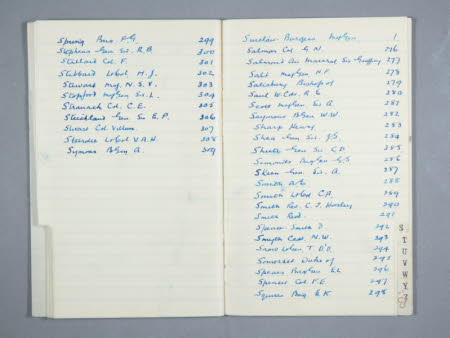 Spring Brig. F.G. 299
Stephens Gen Sir. R.B. 300
Col. F. 301
Stibbard Lt Col. H.J. 302
Stewart Maj. N.S.V. 303
Stopford MajGen Sir. L. 304
Stranack Col. C.E. 305
Strickland Gen Sir E.P. 306
Stuart Col. Villiers. 307
Lt Col V.A.H. 308
Symons BGen A. 309
Sinclair-Burgess MajGen. 1
Salmon Col G.N. 276
Salmond Air Marshal Sir Geoffrey 277
Salt MajGen H.F. 278
Salisbury Bishop of 279
Saul W.Cdr. R.E. 280
Scott MajGen Sir. A. 281
Seymour BGen W.W. 282
Sharp Henry 283
Shea Gen Sir. J.S. 284
Shute Gen Sir C.D. 285
Simonds MajGen G.S. 286
Skeen Gen. Sir. A. 287
Smith A/c 288
Smith Lt Col C.A. 289
Smith Rev. C.J. Horsley 290
Smith Rod. 291
Spencer Smith D. 292
Smyth Capt. N.W. 293
Snow LGen. T. D'O. 294
Somerset Duke of 295
Spears BrigGen E.L. 296
Spencer Col F.E. 297
Squires Brig E.K. 298
S
T
U V W Y Z